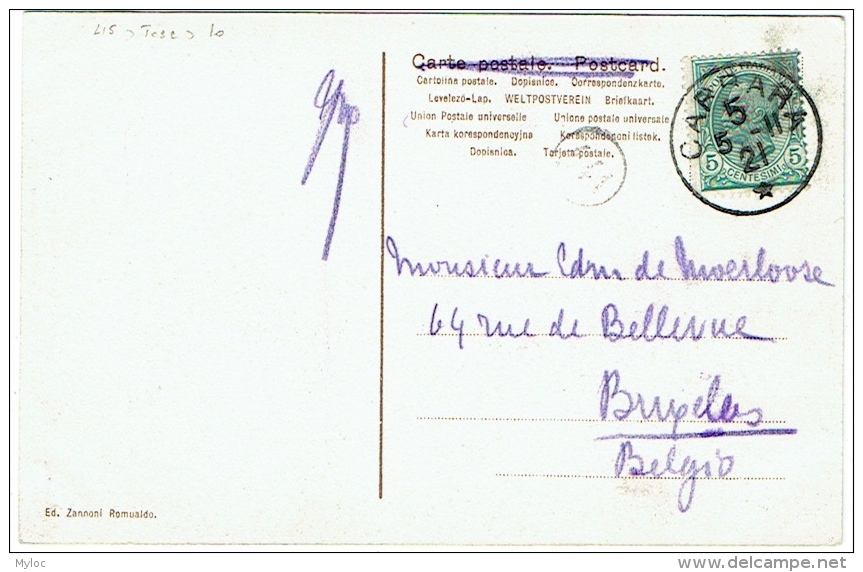 Carte postale. Postcard.
Cartolina postale. Dopisnice. Correspondenzkarte.
Levelező-Lap. WELTPOSTVEREIN Briefkaart.
Union Postale universelle Unione postale universale
Karta korespondencyjna Korespondencni listek.
Dopisnica. Tarjeta postale.
CARRARA
5
5 -11
21
5 5
CENTESIMI
Monsieur Edm de Moerloose
64 rue de Bellevue
Bruxelles
Belgio
Ed. Zannoni Romualdo.
Myloc
delcampe.net